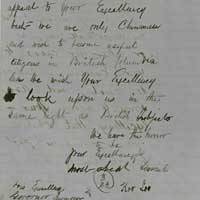 appeal to Your Excellency
but we are only Chinamen
and wish to become useful
citizens in British Columbia
and we wish Your Excellency
to look upon us in the
same light as British Subjects
We have the honor
to be
Your Excellency's
most obedt Servants
Kee Soo
Governor